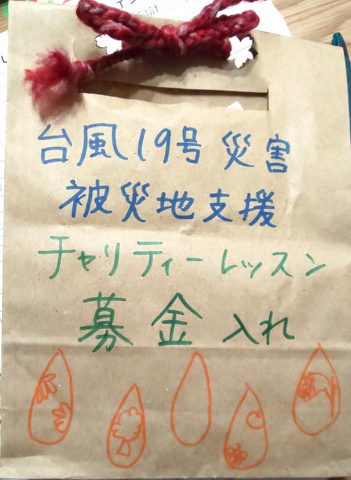 台風19号 災害
被災地支援
チャリティーレッスン
募金入れ